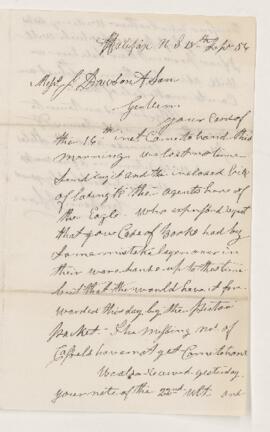 Halifax N.S 18th Sept 54
Messrs J Dawson & Son
Gentlem.
your Card of
the 16th inst Came to hand this
morning. We lost no time
and the inclosed
to the agents here of
the Eagle. Who regret
that your Case of Books had by
some mistake layen over in
their warehouse up to this time
but that the would have it for
warded this day by the Pictou
packet - The Missing No of
have not yet Come to hand
We also received yesterday
your note of the 22nd ult. and